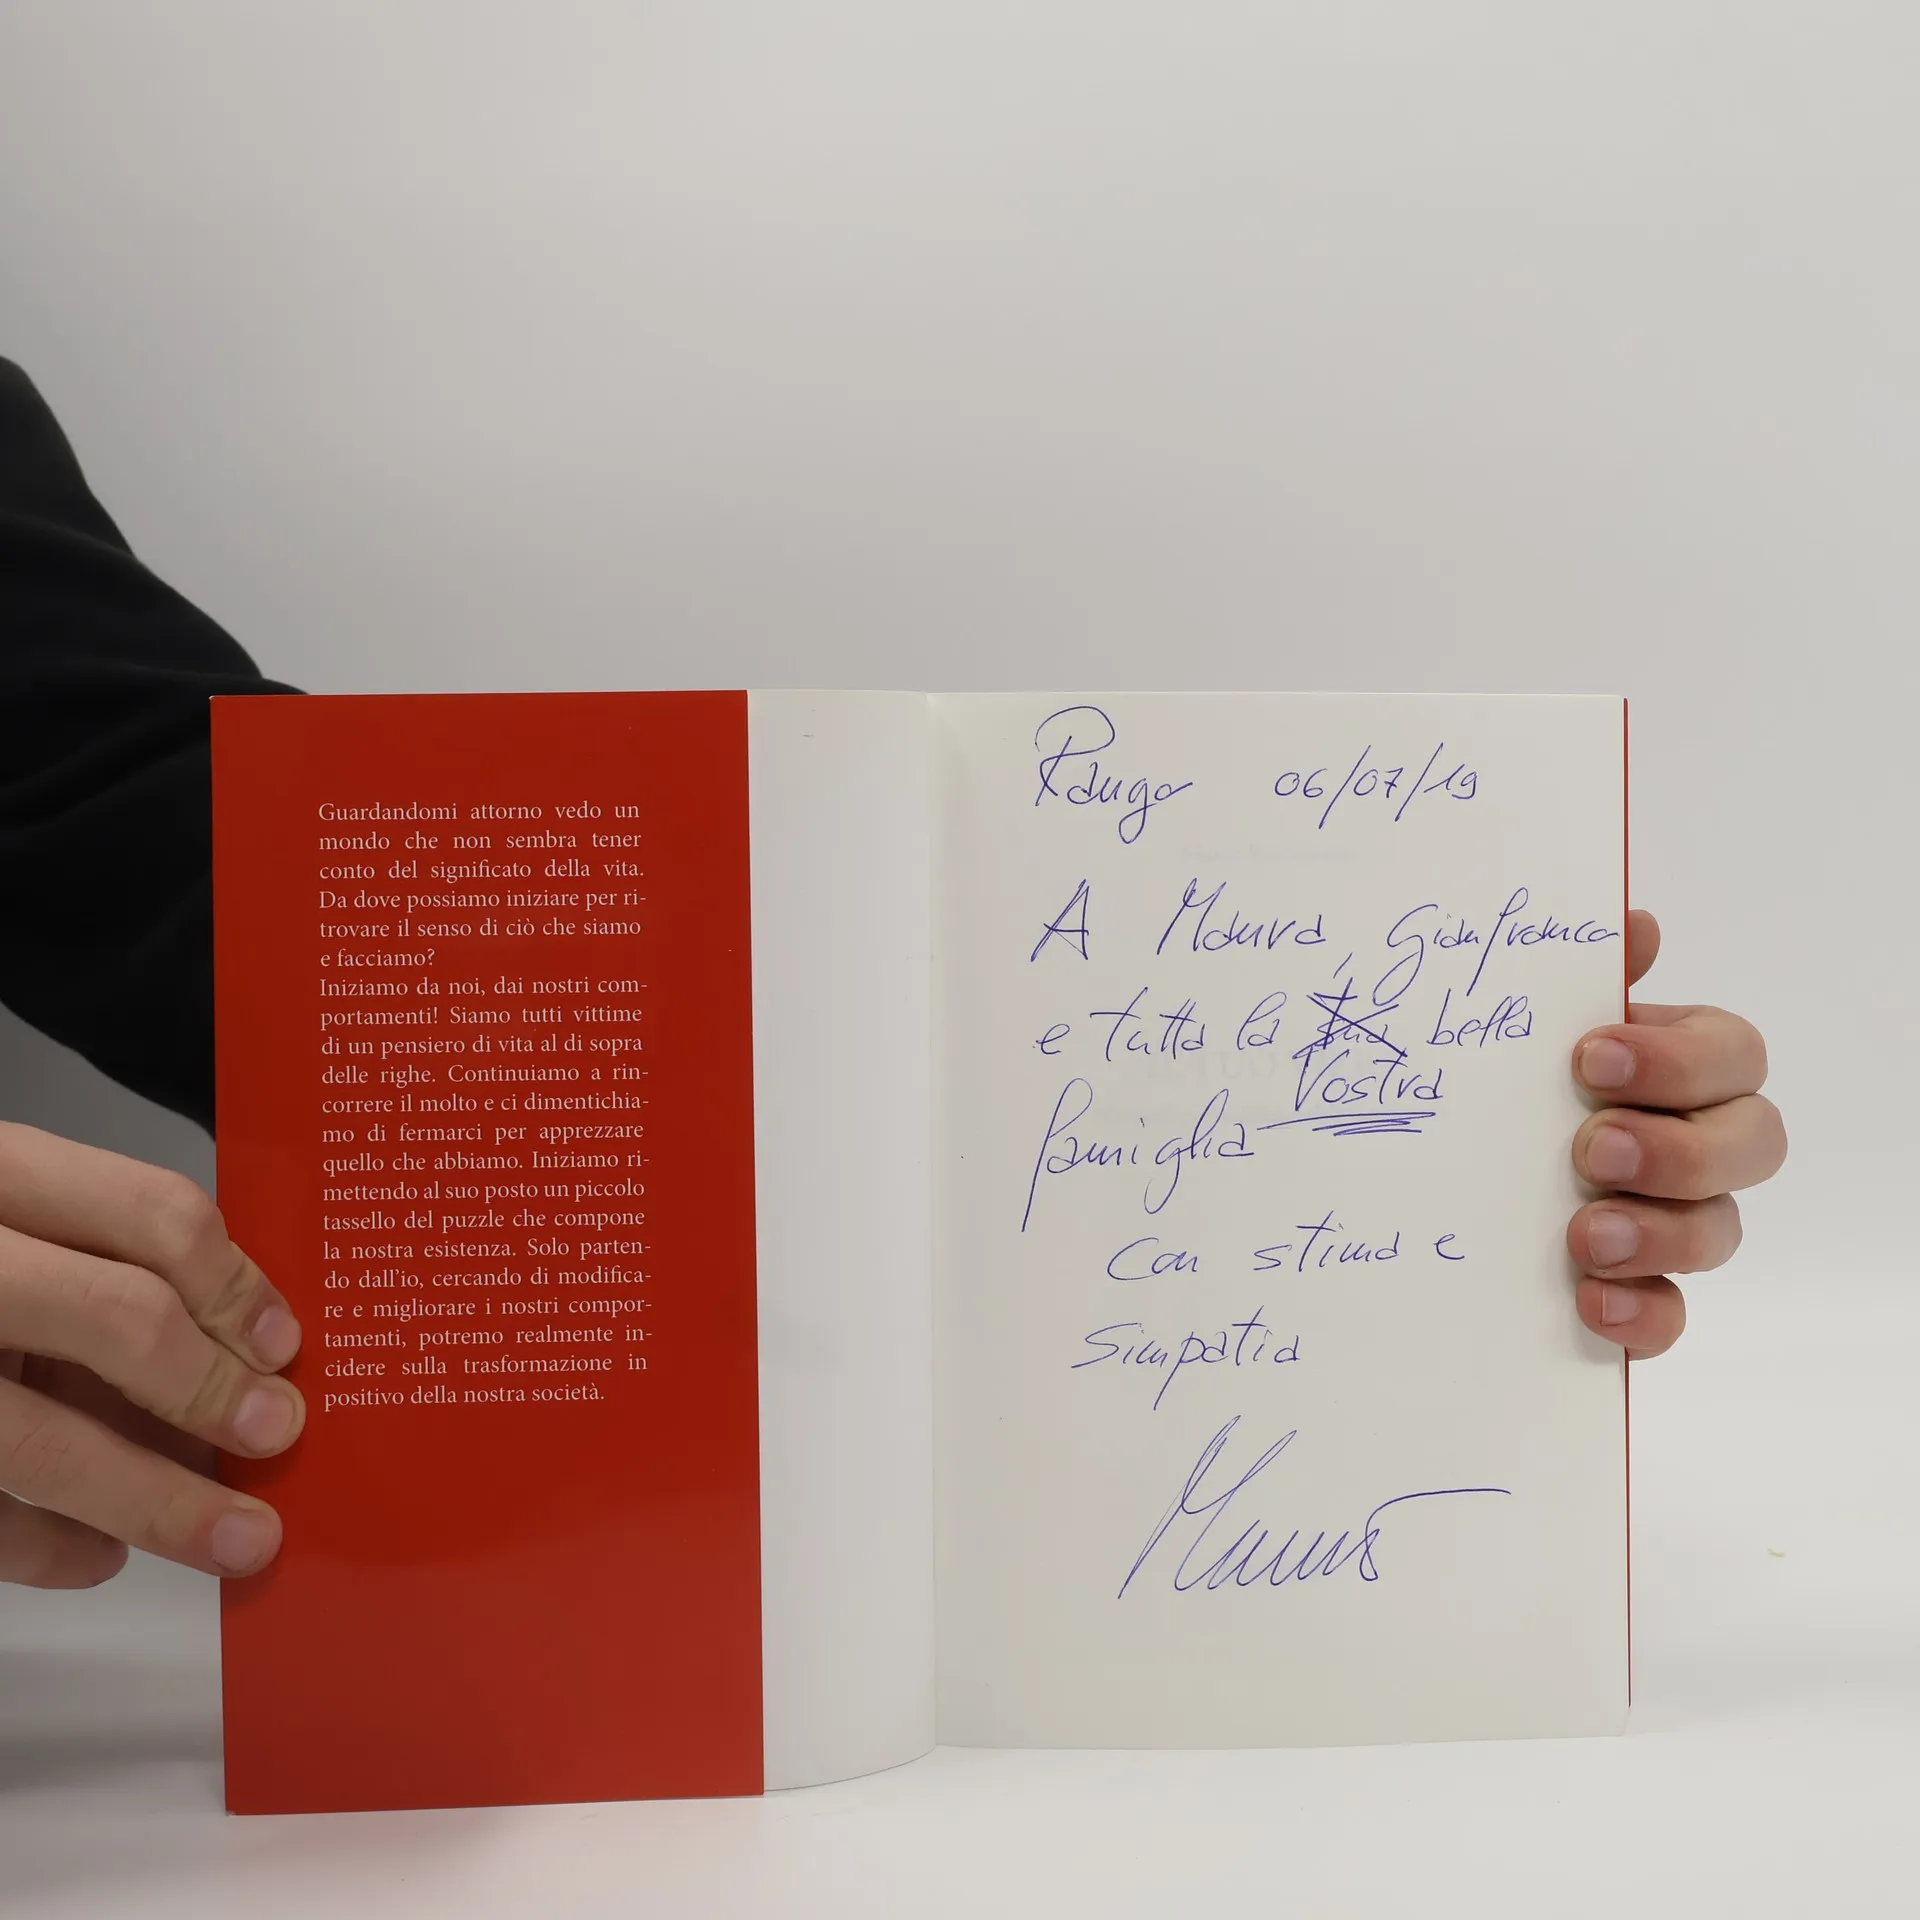 Guardandomi attorno vedo un
mondo che non sembra tener
conto del significato della vita.
Da dove possiamo iniziare per ri-
trovare il senso di ciò che siamo
e facciamo?
Iniziamo da noi, dai nostri com-
portamenti! Siamo tutti vittime
di un pensiero di vita al di sopra
delle righe. Continuiamo a rin-
correre il molto e ci dimentichia-
mo di fermarci per apprezzare
quello che abbiamo. Iniziamo ri-
mettendo al suo posto un piccolo
tassello del puzzle che compone
la nostra esistenza. Solo parten-
do dall'io, cercando di modifica-
re e migliorare i nostri compor-
tamenti, potremo realmente in-
cidere sulla trasformazione in
positivo della nostra società.
Rango 06/07/19
A Maura, Gianfranco
e tutta la bella
Vostra
famiglia
con stima e
simpatia